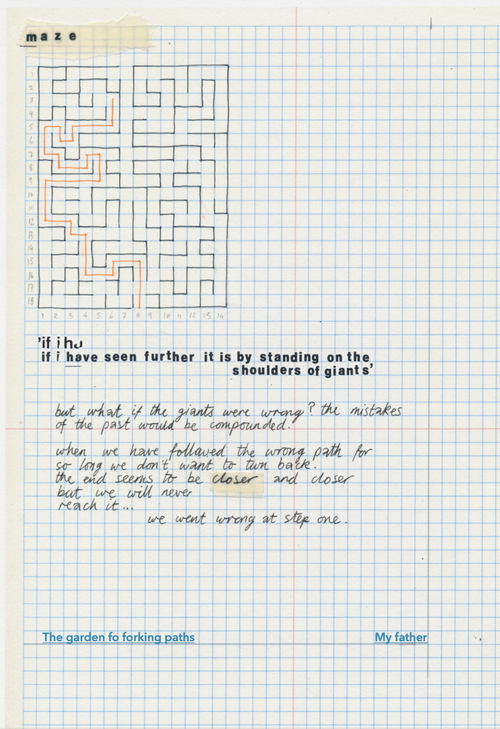 maze
1
2
3
4
5
6
7
8
9
10
11
12
13
14
15
16
17
18
1 2 3 4 5 6 7 8 9 10 11 12 13 14
'if i ha
if i have seen further it is by standing on the
shoulders of giants'
but what if the giants were wrong? the mistakes
of the past would be compounded.
when we have followed the wrong path for
so long we don't want to turn back.
the end seems to be closer and closer
but we will never
reach it...
we went wrong at step one.
The garden fo forking paths
My father